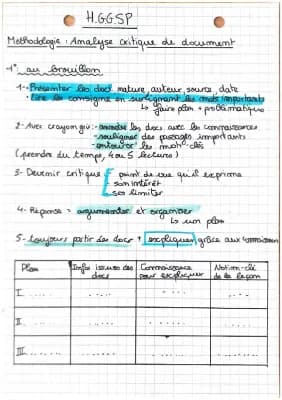 H.G.G.SP
Méthodologie : Analyse critique de document
-1° au brouillon
1 - Présenter les doc nature, auteur, source, date
• Lire les consigne en surlignant les mots importants
↳ faire plan + problématique
2- Avec crayon gris : - annoter les docs avec les connaissances
- souligner des passages importants
- entourer les mots-clés
(prendre du temps, 4 ou 5 lectures)
3- Devenir critique { point de vue qu'il exprime
son intérêt
ses limites
4- Réponse = argumenter et organiser
↳ un plan
5- Toujours partir des docs + expliquer grâce aux connaissances
Plan Info issues des docs Connaissance pour expliquer Notion-clé de la leçon
I. .... ..... ..... .....
II. .... .... ...... ....
III. .... .... ..... ....